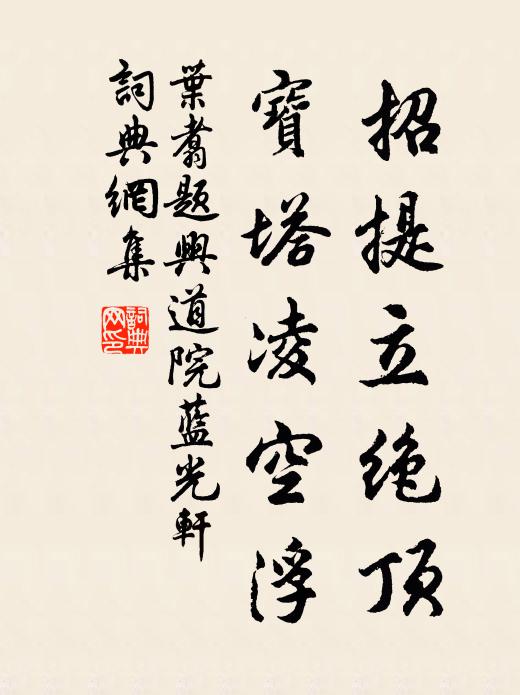 招提立绝顶
寶塔凌空浮
葉翥題興道院藍光軒
詞典網集
詞典网印